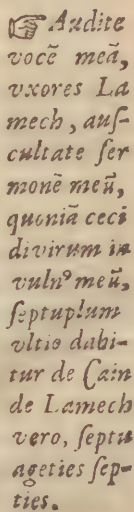 ☞Audite
vocẽ meã,
vxores La
mech, auſ-
cultate ſer
monẽ meũ,
quoniã ceci
di virum in
vulnꝰ meũ,
ſeptuplum
vltio dabi-
tur de Cain
de Lamech
vero, ſeptu
ageties ſep-
ties.